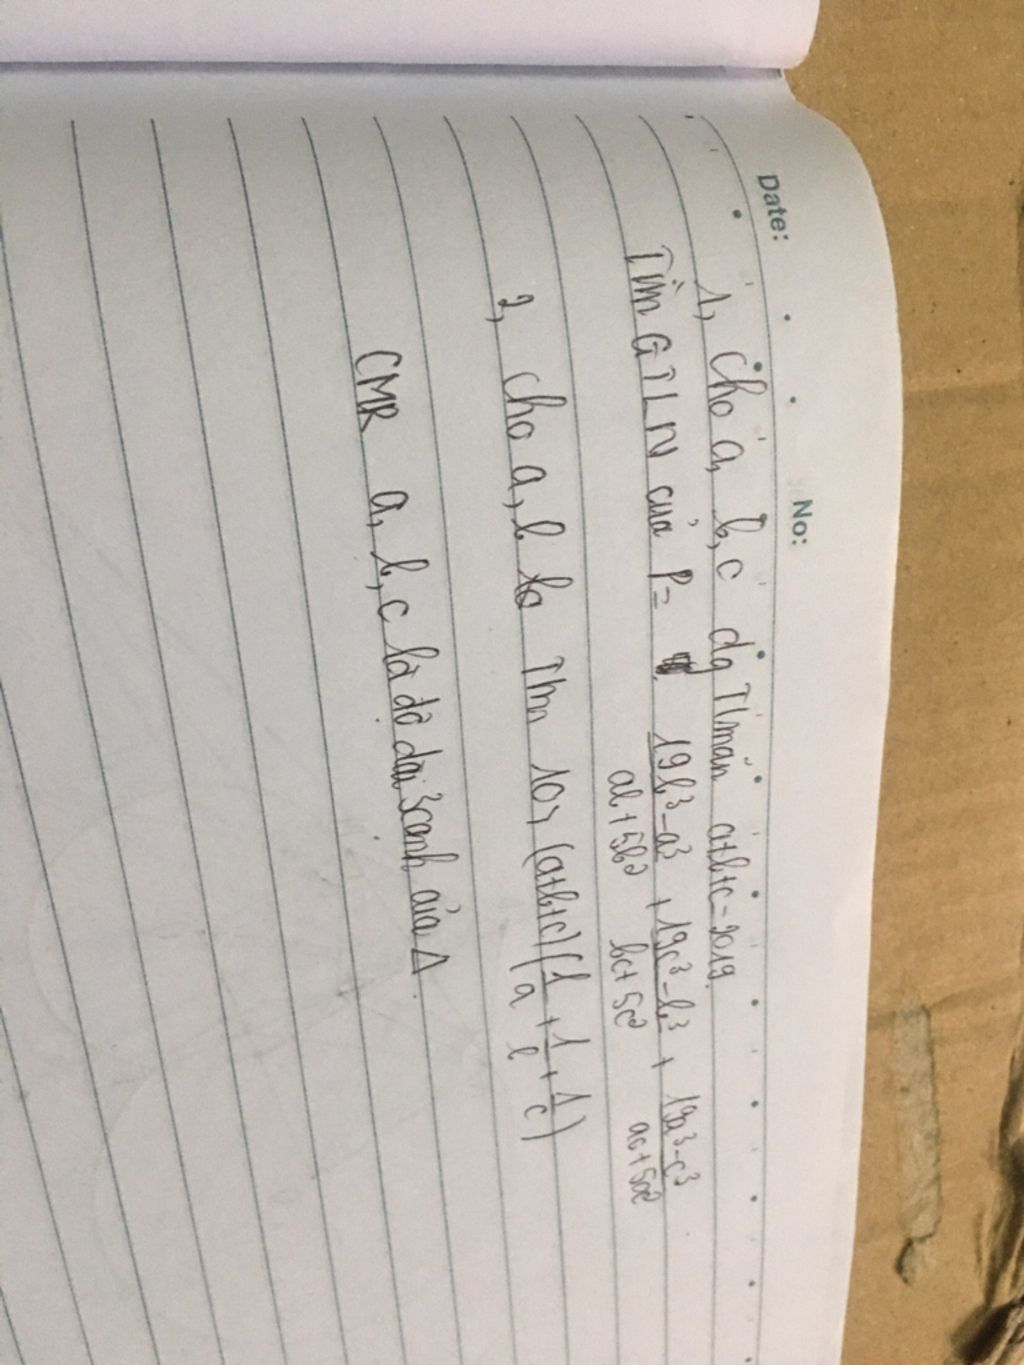 Date: No:
1, Cho a, b, c dg Tlmãn a+b+c=2019.
Tìm GTLN của P= \frac{19b³-a³}{ab+5b²} + \frac{19c³-b³}{bc+5c²} + \frac{19a³-c³}{ac+5a²}
2, cho a, b Tmn 10> (a+b+c)(\frac{1}{a}+\frac{1}{b}+\frac{1}{c})
CMR a, b, c là độ dài 3 cạnh của Δ